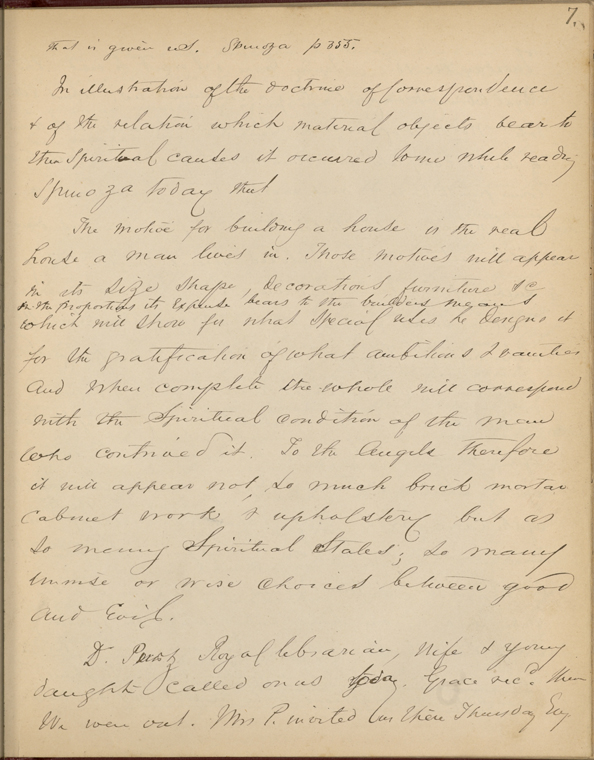 7.
that is given us. Spinoza p 355.
In illustration of the doctrine of Correspondence
& of the relation which material objects bear to
their Spiritual causes it occurred to me while reading
Spinoza today that
The motive for building a house is the real
house a man lives in. Those motives will appear
in its size shape, decorations, furniture &c
in the proportions its Expense bears to the builders means
which will show for what special uses he designs it
for the gratification of what ambitions & vanities
and when complete the whole will correspond
with the Spiritual condition of the man
who contrived it. To the Angels therefore
it will appear not, so much brick mortar
cabinet work & upholstery but as
so many Spiritual States; so many
unwise or wise choices between good
and Evil.
D. Royal librarian, wife & young
daught called on us today. Grace recd. them
We were out. Mrs P. invited us there Thursday Eve